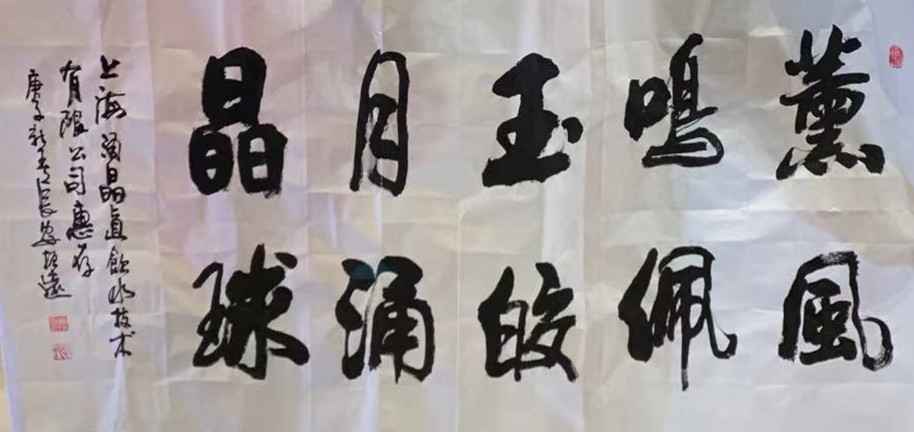 薰風
鳴佩
玉皎
月涌
晶球
上海菊晶直飲水技术
有限公司惠存
庚子新春長安拓遠